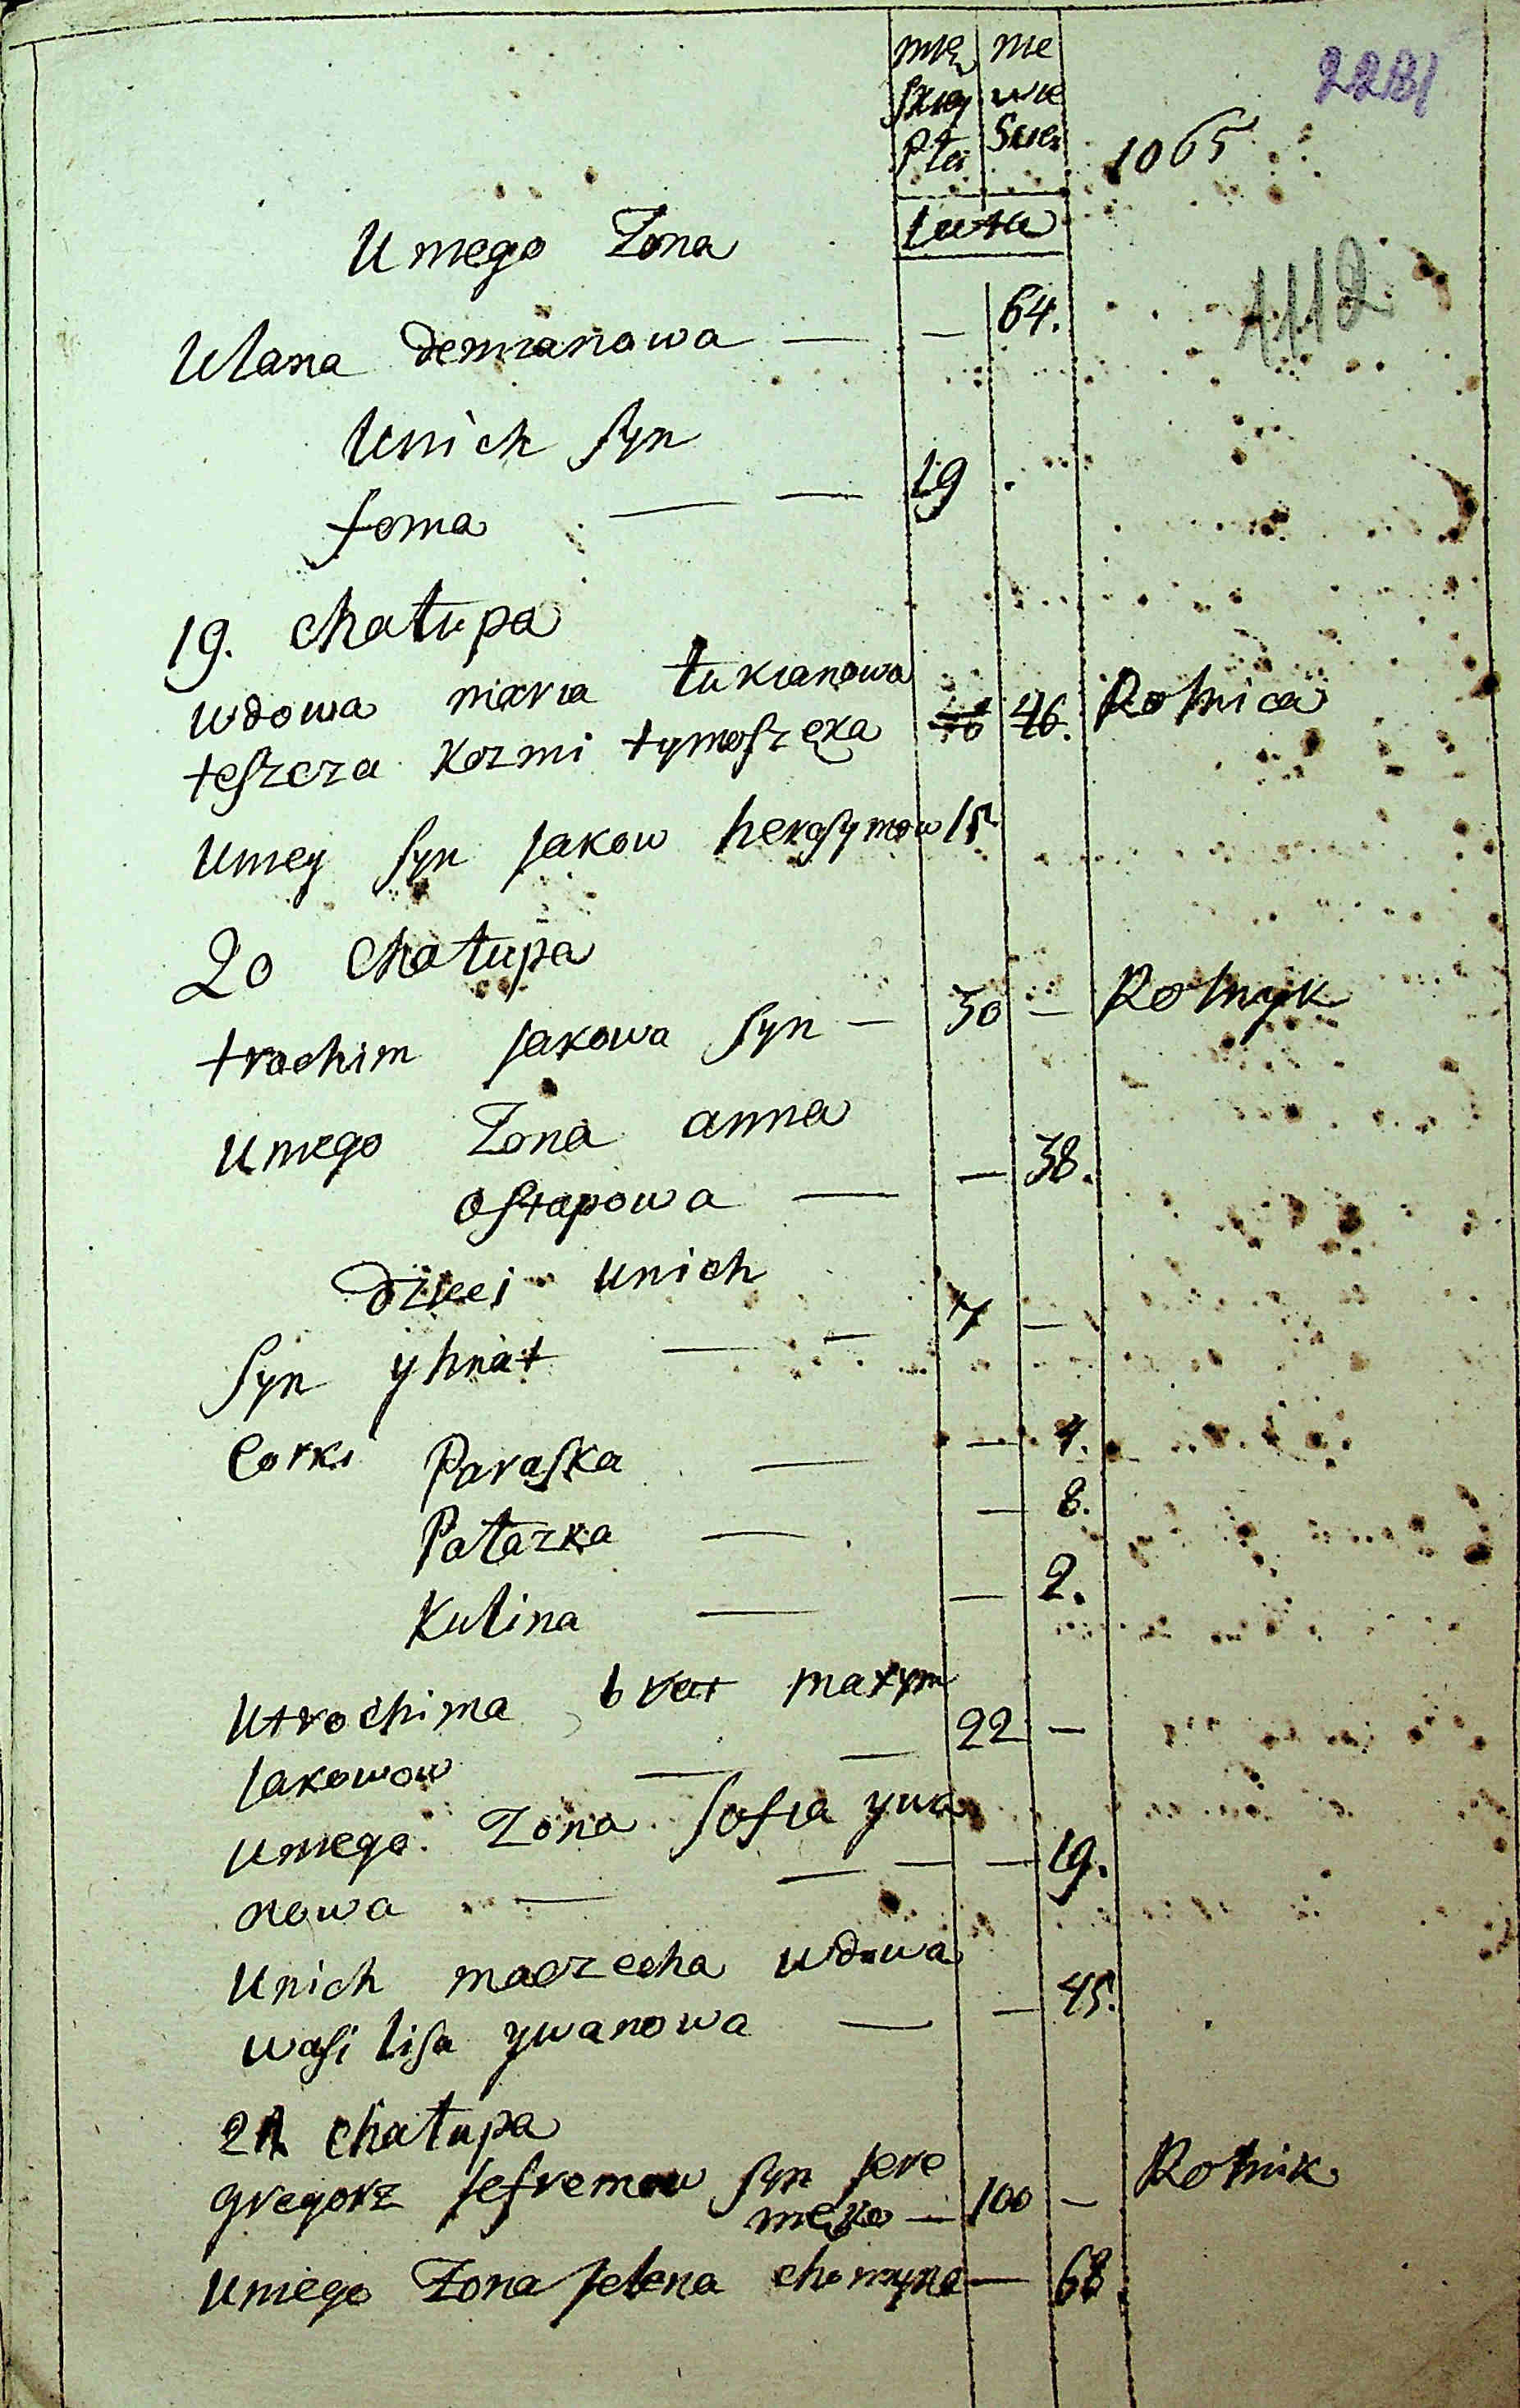 mę nie
skiey wie
Płci Scie
Luta
1065
1112
U niego Zona
Ulana demianowa — — 64.
Unich syn
foma — — 19 .
19. chałupa
wdowa maria łukianowa
teszcza Kozmi tymoszęka 46. Rolnica
Uniey syn Jakow herasymow 15
20 Chałupa
trochim Jakowa syn — 30 — Rolnyk
Uniego Zona anna
ostapowa — — 38.
dzieci unich
syn yhnat — — 7 —
Corki Paraska — — 4.
Patazka — — 8.
Kulina — — 2.
Utrochima brat maxym
Jakowow — — 22 —
Uniego Zona sofia ywa
nowa — — — — 19.
Unich maczecha wdowa
wasilisa ywanowa — — 45.
21 chałupa
gregorz Jefremow syn Jere
męko — 100 — Rolnik
Uniego Zona Jelena chomyna — 68.